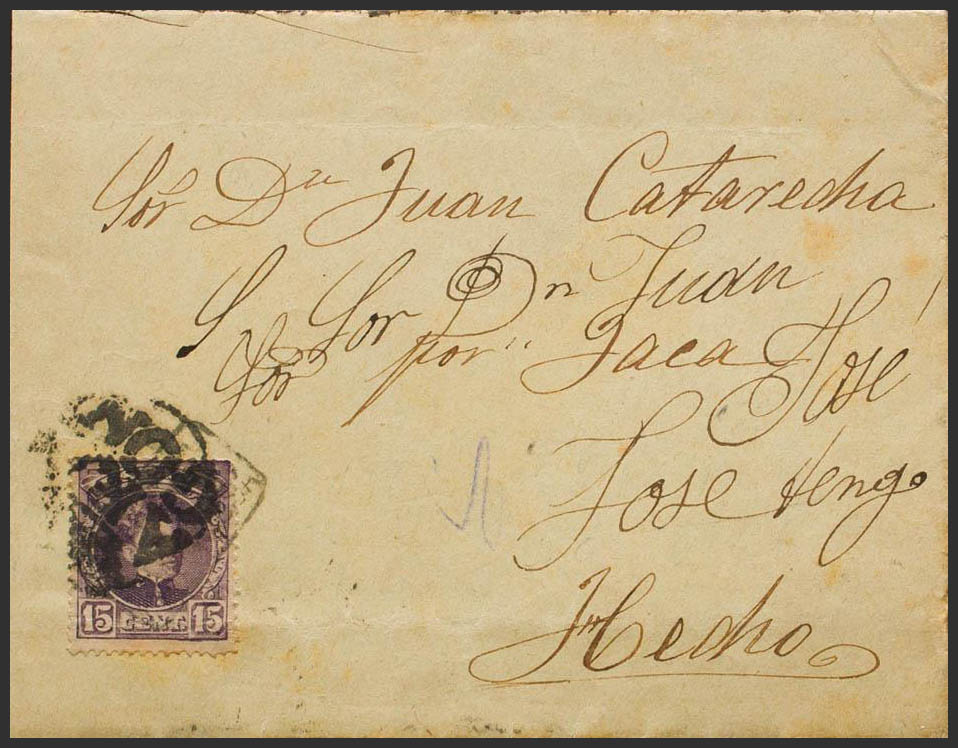 Sor Dn Juan Catarecha
S Sor Dn Juan
Sor por Jaca José
José tengo
Hecho
15 CENT. 15